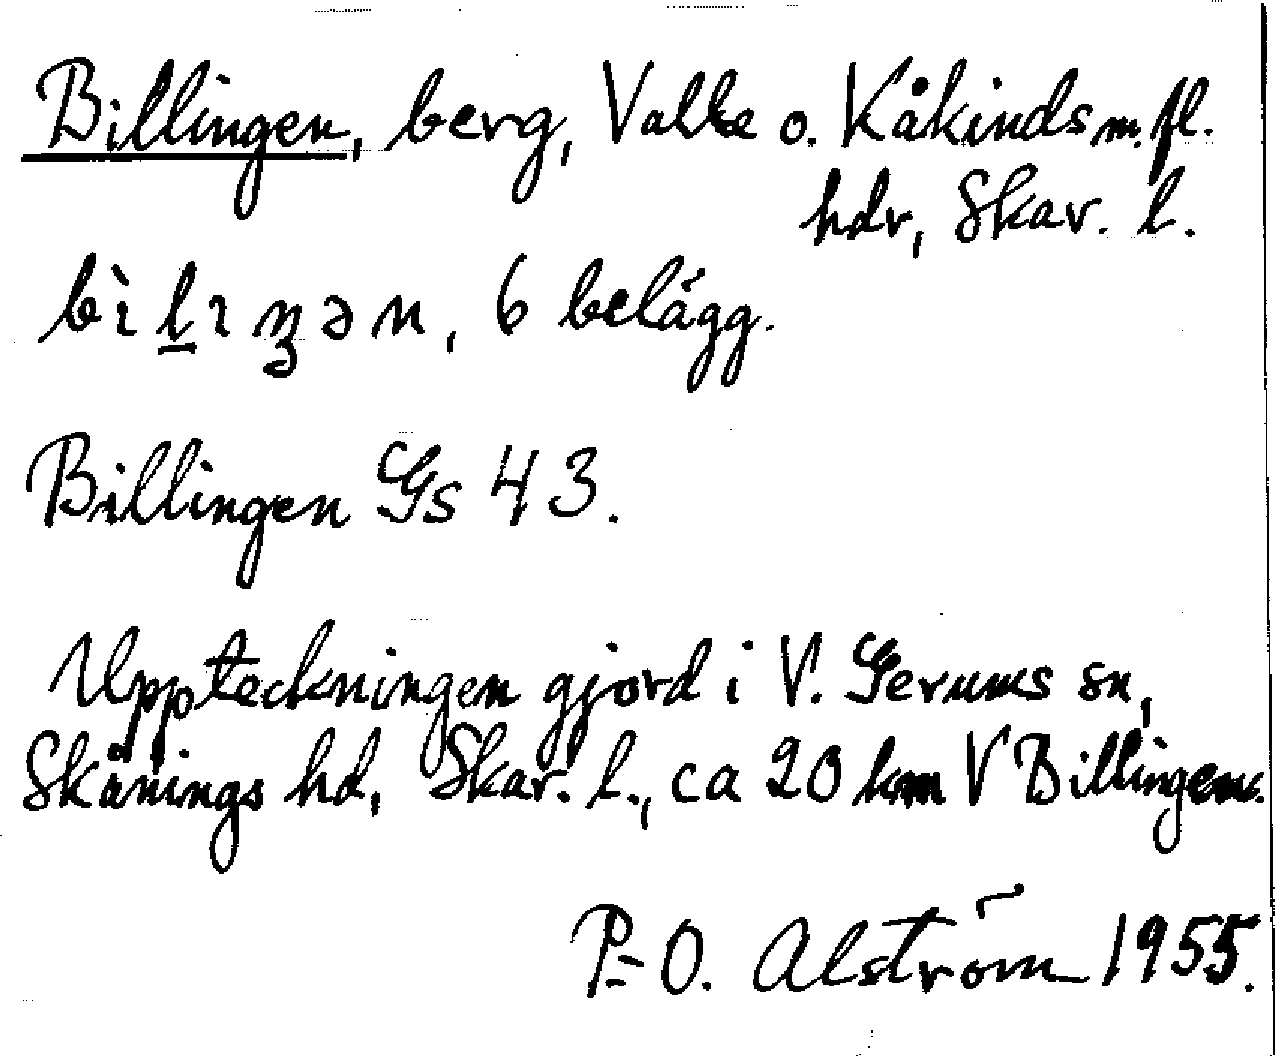 Billingen, berg, Valle o. Kåkinds m. fl.
hdr, Skar. l.
bìl̠ıŋən, 6 belägg.
Billingen Gs 43.
Uppteckningen gjord i V. Gerums sn,
Skånings hd, Skar. l., ca 20 km V Billingen.
P-O. Alström 1955.